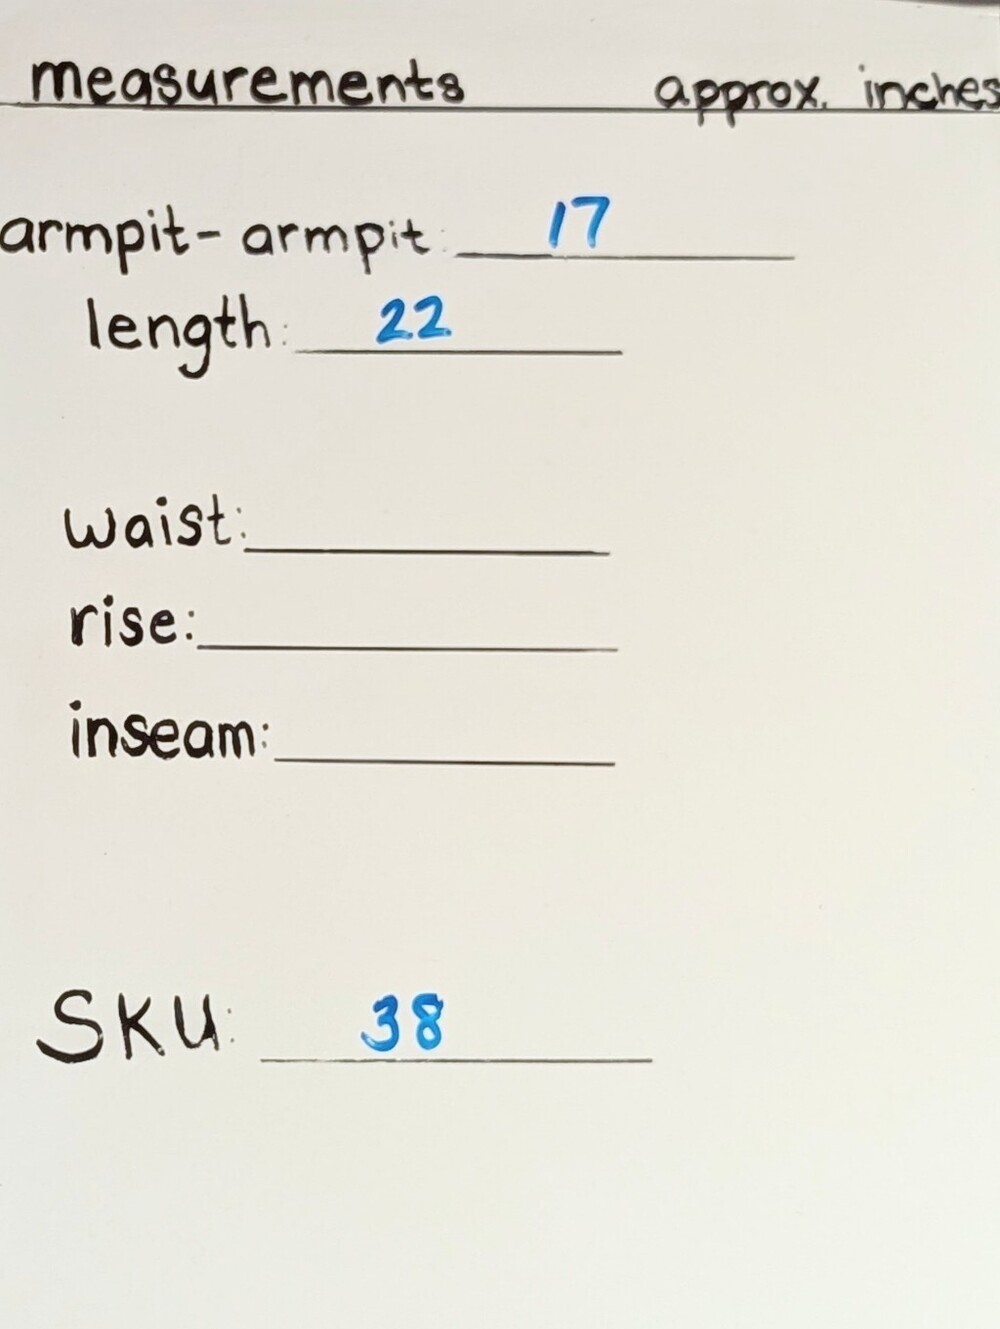 measurements approx. inches
armpit-armpit: 17
length: 22
waist:
rise:
inseam:
SKU: 38